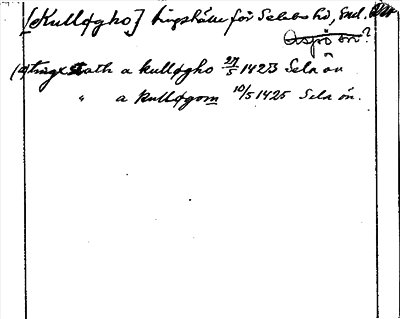 [Kulløgho] tingställe för Selebo hd, Södl.
Aspö sn?
(a) tingxstath a kulløgho 27/5 1423 Sela ön
" a kulløgom 10/5 1425 Sela ön.